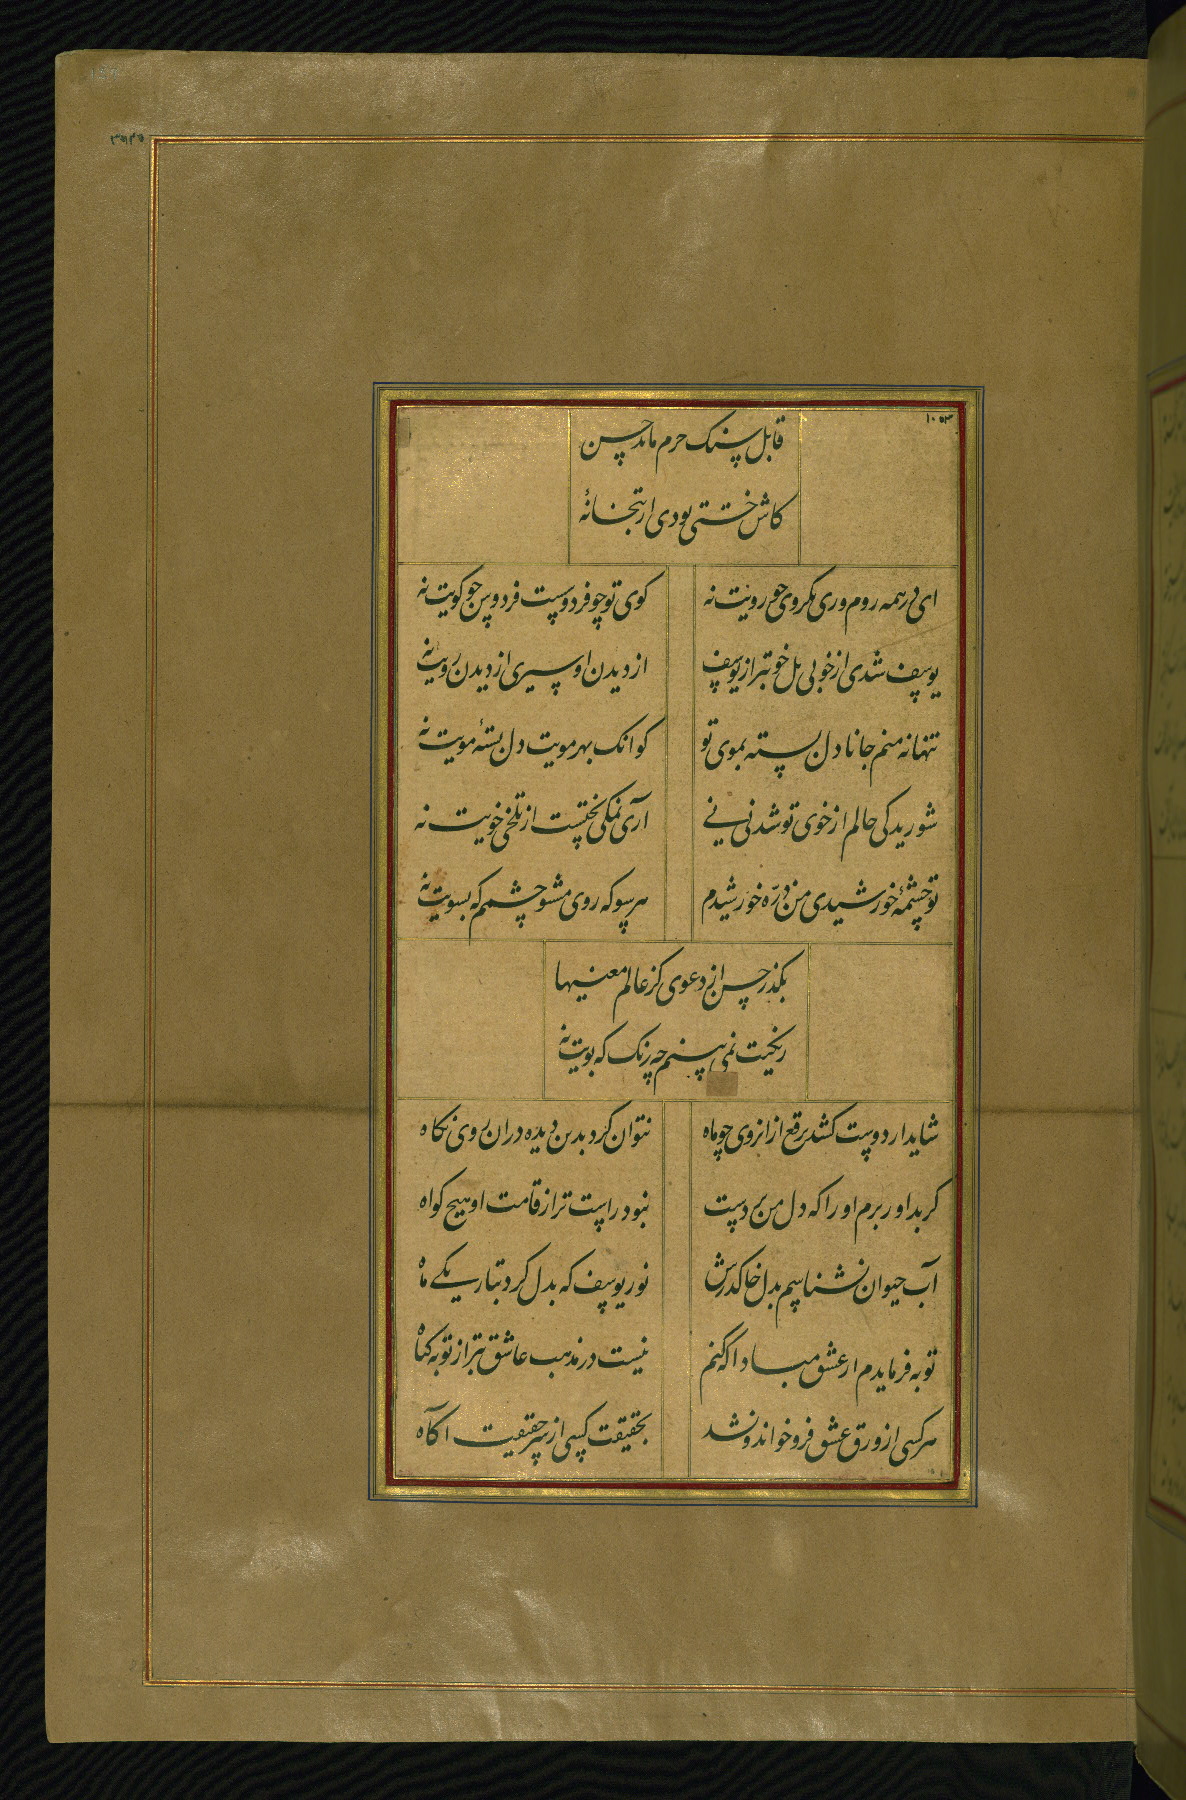 قابل سنک حرم ماند حسن
کاش خشتی بودی از بتخانهٔ
ای در همه روم وری مکروی چو رویت نه
کوی تو چو فردوست فردوس چو کویت نه
یوسف شدی از خوبی بل خوبتر از یوسف
از دیدن او سیری از دیدن رویت نه
تنها نه منم جانا دل بسته بموی تو
کو انک بهر مویت دل بستهٔ مویت نه
شوریدکی حالم از خوی تو شد نی نی
آری نمکی بختست از تلخی خویت نه
تو چشمهٔ خورشیدی من ذره خورشیدم
هر سو که روی مشو چشمم که بسویت نه
بکذر حسن از دعوی کز عالم معنیها
رنکیت نمی بینم چه رنک که بویت نه
شاید ار دوست کشد برقع از ان روی چو ماه
نتوان کرد بدین دیده در ان روی نکاه
کر بداور برم او را که دل من بردست
نبود راست تر از قامت او هیچ کواه
آب حیوان نشناسیم بدل خاک درش
نور یوسف که بدل کرد بتاریکی ماه
توبه فرمایدم از عشق مبادا که کنم
نیست در مذهب عاشق بتر از توبه کناه
هر کسی از ورق عشق فرو خواند و نشد
بحقیقت کسی از سر حقیقت اکآه